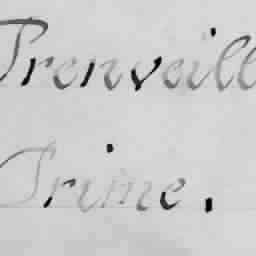 Prenveill
Prime.